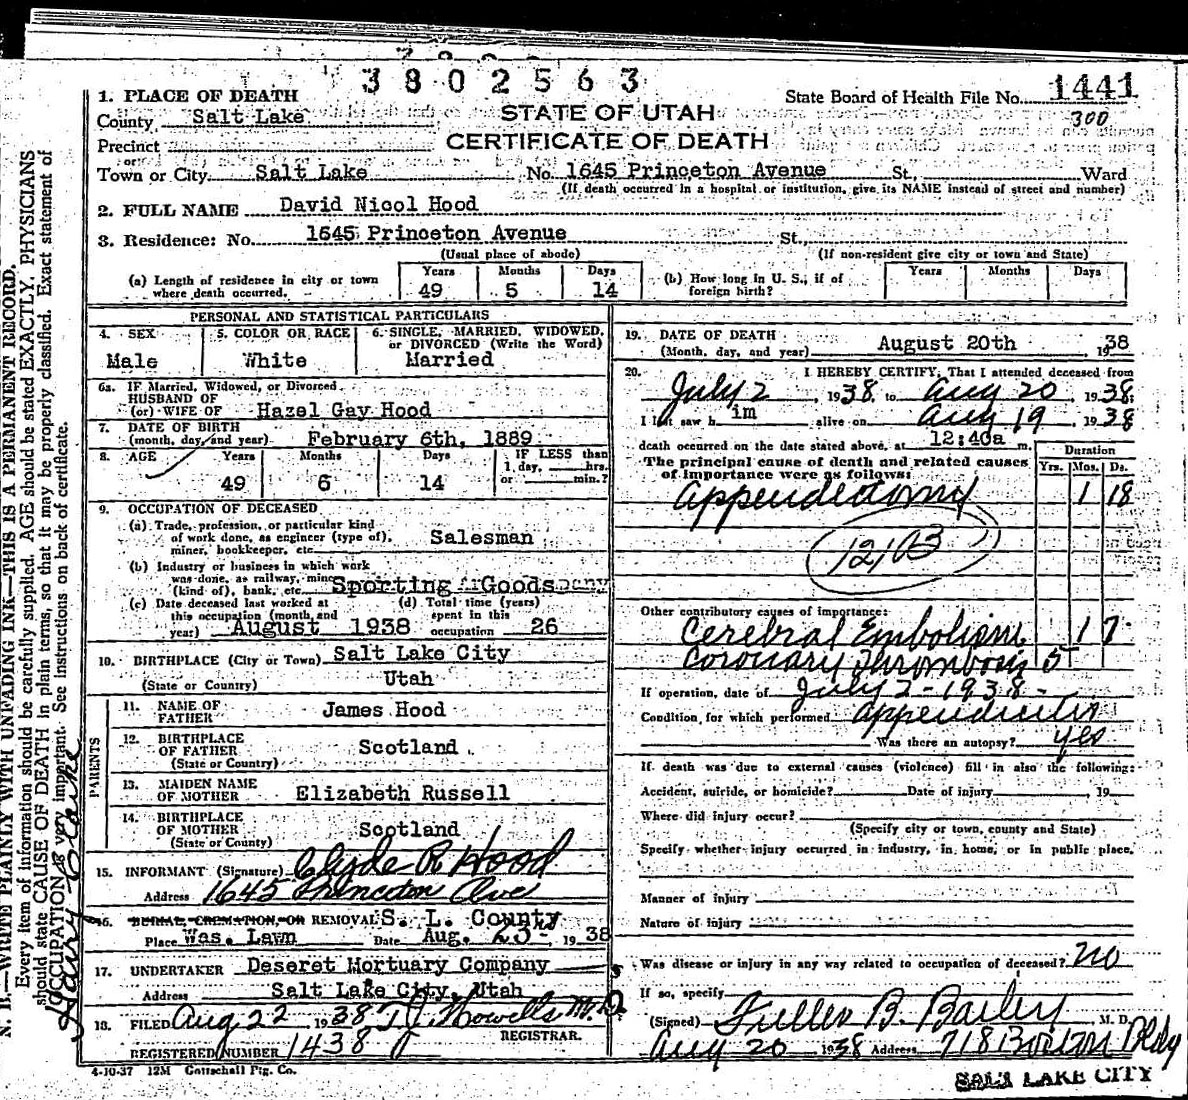 3802563
1. PLACE OF DEATH
State Board of Health File No. 1441
County Salt Lake
STATE OF UTAH
300
Precinct
CERTIFICATE OF DEATH
or
Town or City Salt Lake No. 1645 Princeton Avenue St., Ward
(If death occurred in a hospital or institution, give its NAME instead of street and number)
2. FULL NAME David Nicol Hood
3. Residence: No. 1645 Princeton Avenue St.
(Usual place of abode) (If non-resident give city or town and State)
(a) Length of residence in city or town where death occurred. Years 49 Months 5 Days 14
(b) How long in U. S., if of foreign birth? Years Months Days
PERSONAL AND STATISTICAL PARTICULARS
4. SEX Male
5. COLOR OR RACE White
6. SINGLE, MARRIED, WIDOWED, or DIVORCED (Write the Word) Married
6a. IF Married, Widowed, or Divorced
HUSBAND OF
(or) WIFE OF Hazel Gay Hood
7. DATE OF BIRTH
(month, day, and year) February 6th, 1889
8. AGE Years 49 Months 6 Days 14 IF LESS than 1 day, hrs. or min.?
9. OCCUPATION OF DECEASED
(a) Trade, profession, or particular kind
of work done, as engineer (type of), Salesman
miner, bookkeeper, etc
(b) Industry or business in which work
was done, as railway, mine
(kind of), bank, etc. Sporting Goods
(c) Date deceased last worked at this occupation (month and year) August 1938
(d) Total time (years) spent in this occupation 26
10. BIRTHPLACE (City or Town) Salt Lake City
(State or Country) Utah
PARENTS
11. NAME OF FATHER James Hood
12. BIRTHPLACE OF FATHER Scotland
(State or Country)
13. MAIDEN NAME OF MOTHER Elizabeth Russell
14. BIRTHPLACE OF MOTHER Scotland
(State or Country)
15. INFORMANT (Signature) Clyde R Hood
Address 1645 Princeton Ave
16. BURIAL, CREMATION, OR REMOVAL S. L. County
Place Was. Lawn Date Aug. 23rd 1938
17. UNDERTAKER Deseret Mortuary Company
Address Salt Lake City, Utah
18. FILED Aug 22 1938 T J Howells M.D.
REGISTRAR.
REGISTERED NUMBER 1438
4-10-37 12M Gottschall Ptg. Co.
19. DATE OF DEATH
(Month, day, and year) August 20th 1938
20. I HEREBY CERTIFY, That I attended deceased from
July 2, 1938, to Aug 20, 1938;
I last saw him alive on Aug 19 1938
death occurred on the date stated above, at 12:40a m.
Duration
The principal cause of death and related causes
of importance were as follows: Yrs. Mos. Ds.
Appendectomy 1 18
Other contributory causes of importance:
Cerebral Embolism 1 7
Coronary Thrombosis 5
If operation, date of July 2-1938-
Condition for which performed appendicitis
Was there an autopsy? yes
If death was due to external causes (violence) fill in also the following:
Accident, suicide, or homicide? Date of injury , 19
Where did injury occur?
(Specify city or town, county and State)
Specify whether injury occurred in industry, in home, or in public place.
Manner of injury
Nature of injury
Was disease or injury in any way related to occupation of deceased? No
If so, specify
(Signed) Fuller B. Bailey M. D.
Aug 20 1938 Address 718 Boston Bldg
SALT LAKE CITY
N. B.—WRITE PLAINLY WITH UNFADING INK—THIS IS A PERMANENT RECORD.
Every item of information should be carefully supplied. AGE should be stated EXACTLY. PHYSICIANS
should state CAUSE OF DEATH in plain terms, so that it may be properly classified. Exact statement of
OCCUPATION is very important. See instructions on back of certificate.